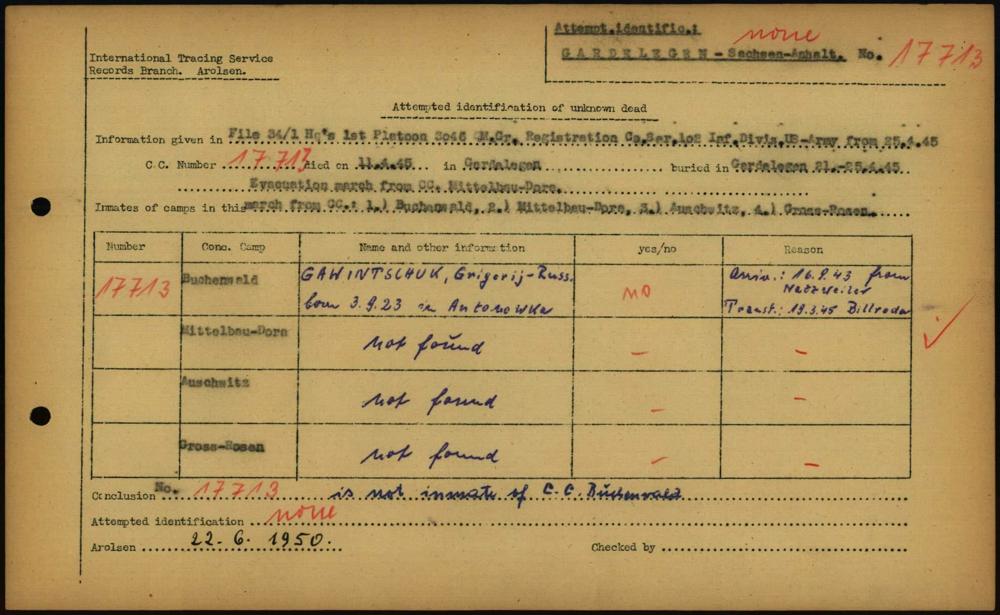 Attempt.identific.: none
International Tracing Service
Records Branch. Arolsen.
GARDELEGEN - Sachsen-Anhalt. No. 17713
Attempted identification of unknown dead
Information given in File 34/1 Hq's 1st Platoon 3046 QM.Gr. Registration Co.Ser.102 Inf.Divis.US-Army from 25.4.45
C.C. Number 17713 died on 11.4.45 in Gardelegen buried in Gardelegen 21.-25.4.45
Evacuation march from CC. Mittelbau-Dora.
Inmates of camps in this march from CC.: 1.) Buchenwald, 2.) Mittelbau-Dora, 3.) Auschwitz, 4.) Gross-Rosen.
Number Conc. Camp Name and other information yes/no Reason
17713 Buchenwald GAWINTSCHUK, Grigorij-Russ. born 3.9.23 in Antonowka no Arriv.: 16.9.43 from Natzweiler Transf.: 19.3.45 Billroda
Mittelbau-Dora not found – –
Auschwitz not found – –
Gross-Rosen not found – –
Conclusion No. 17713 is not inmate of C.C. Buchenwald
Attempted identification none
Arolsen 22. 6. 1950. Checked by